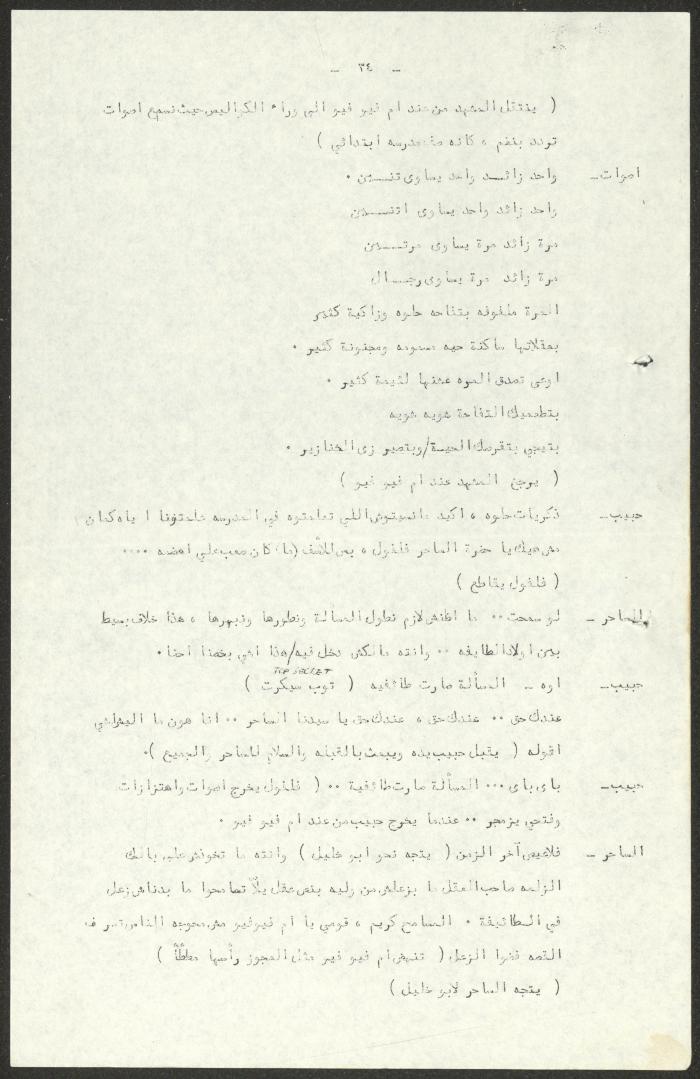 - ٣٤ -
( ينتقل المشهد من عند ام فيو فيو الى وراء الكواليس حيث نسمع اصوات
تردد بنغم ، كانه صف مدرسه ابتدائي )
اصوات - واحد زائــد واحد يساوى تنــين .
واحد زائد واحد يساوى اتنــين
مرة زائد مرة يساوى مرتــين
مرة زائد مرة يساوى رجــال
المرة ملفوفه بتفاحه حلوه وزاكية كثير
بعقلاتها ساكنة حيه مسمومه ومجنونة كثير .
اوعى تصدق المره عشنها لئيمة كثير .
بتطعميك التفاحة شويه شويه
بتيجي بتقرصك الحيــة/وبتصير زى الخنازير .
( يرجع المشهد عند ام فيو فيو )
حبيب - ذكريات حلوه ، اكيد ما نسيتوش اللي تعلمتوه في المدرسه علمتونا اياه كمان ،
مش هيك يا حضرة الساحر فلفول ، بس للأسف (ما) كان صعب علي اهضمه ....
( فلفول يقاطع )
الساحر - لو سمحت .. ما اظنش لازم نطول المسالة ونطورها ونبهرها ، هذا خلاف بسيط
بين اولاد الطايفه .. وانته مالكش دخل فيه/هذا اشي بخصنا احنا .
TOP SECRET
حبيب - اوه - المسألة صارت طائفيه ( توب سيكرت )
عندك حق .. عندك حق ، عندك حق يا سيدنا الساحر .. انا هون ما اليش اشي
اقوله ( يقبل حبيب يده ويبعث بالقبله والسلام للساحر والجميع ).
حبيب - باى باى ... المسألة صارت طائفية .. ( فلفول يخرج اصوات واهتزازات
وفتحي يزمجر .. عندما يخرج حبيب من عند ام فيو فيو .
الساحر - فلاعيص آخر الزمن ( يتجه نحو ابو خليل ) وانته ما تخوتش علي بالك
الزلمه صاحب العقل ما بزعلش من وليه بنص عقل يلاّ تصامحوا ما بدناش زعل
في الطائفة . المسامح كريم ، قومي يا ام فيوفيو
القصه فضوا الزعل ( تنهض ام فيو فيو مثل العجوز رأسها مطأطأ )
( يتجه الساحر لابو خليل )